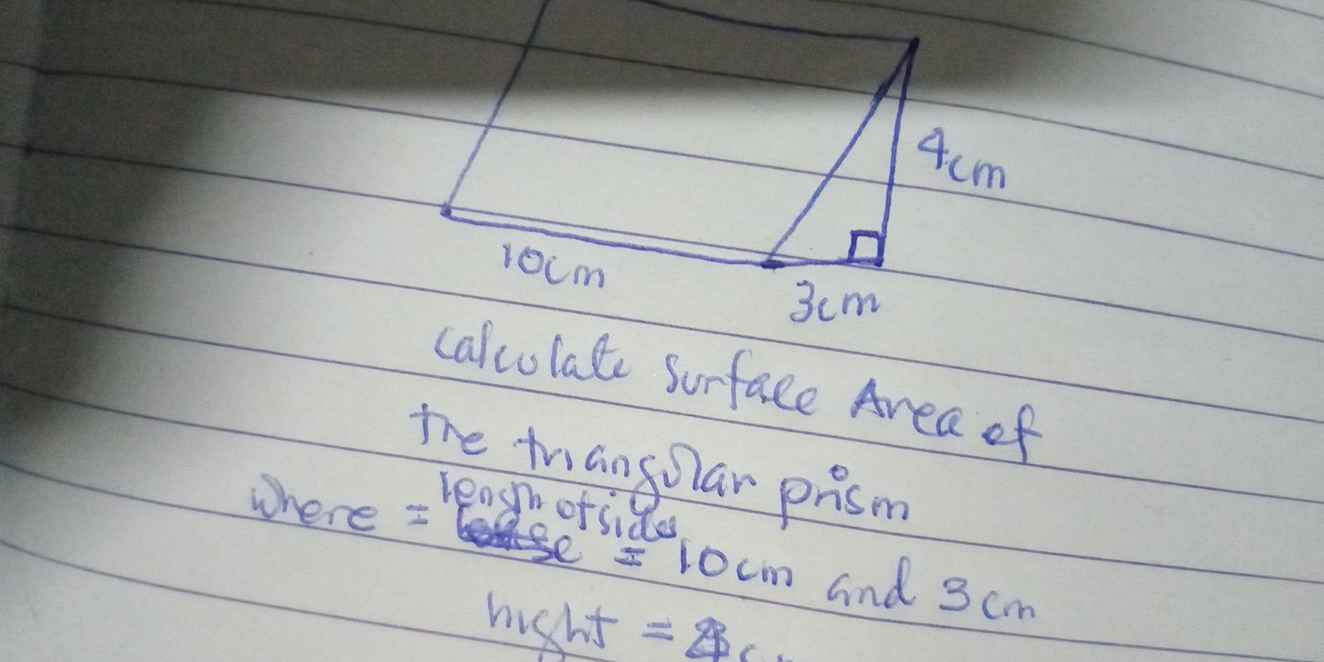 4cm
10cm
3cm
calculate surface Area of
the triangular prism
where = length of sides = 10cm and 3cm
hight = 4c